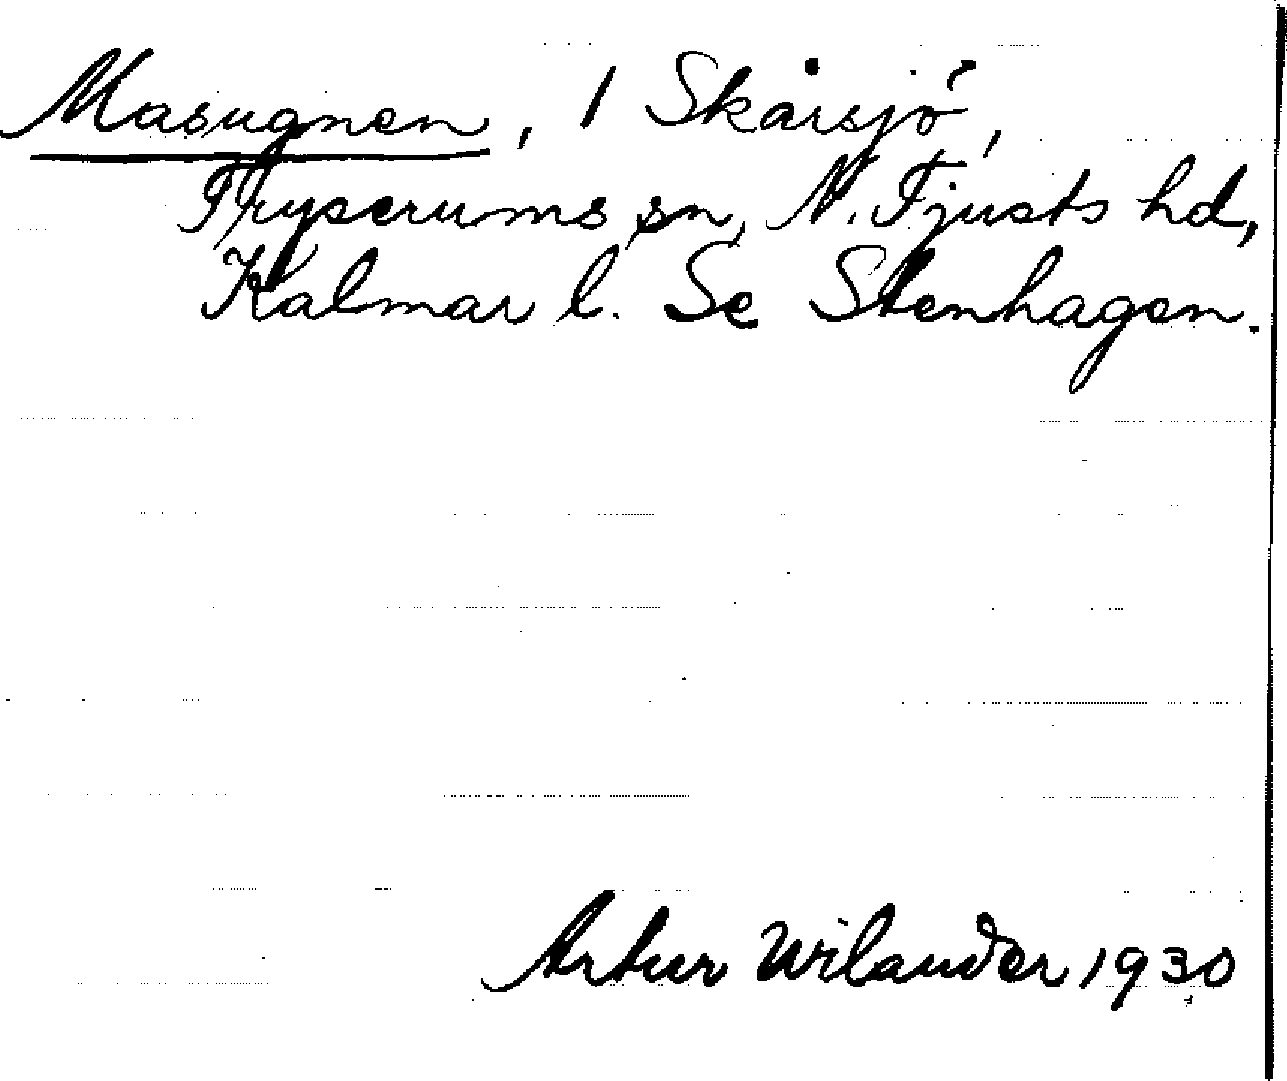 Masugnen, / Skårsjö,
Tryserums sn, N. Tjusts hd,
Kalmar l. Se Stenhagen.
Artur Wilander 1930